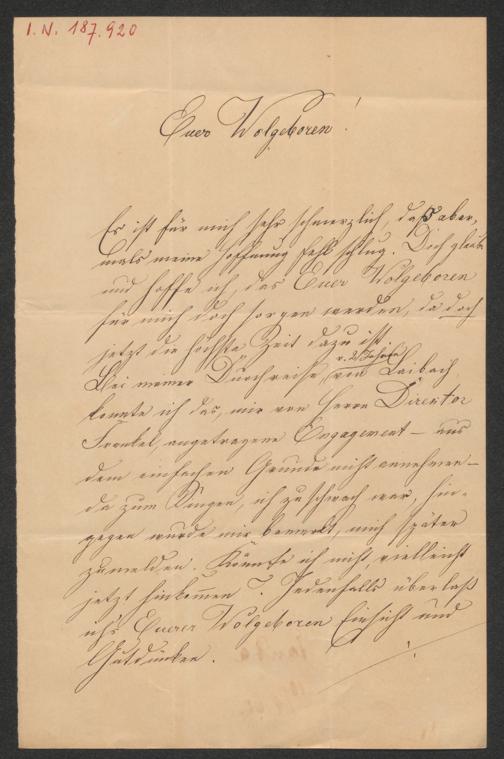 I. N. 187.920
Euer Wolgeboren!
Es ist für mich sehr schmerzlich, daß aber-
mals meine Hoffnung fehl schlug. Doch glaube
und hoffe ich, das Euer Wolgeboren
für mich doch sorgen werden, da doch
jetzt die höchste Zeit dazu ist.
Bei meiner Durchreise von Laibach,
konnte ich das, mir von Herrn Direktor
Frankel angetragene Engagement – aus
dem einfachen Grunde nicht annehmen –
da zum Singen, ich zu schwach war, hin-
gegen wurde mir bemerkt, mich später
zumelden. Könnte ich nicht, vielleicht
jetzt hinkommen ?. Jedenfalls überlaß
ich's Euerer Wolgeboren Einsicht und
Gutdünken.!